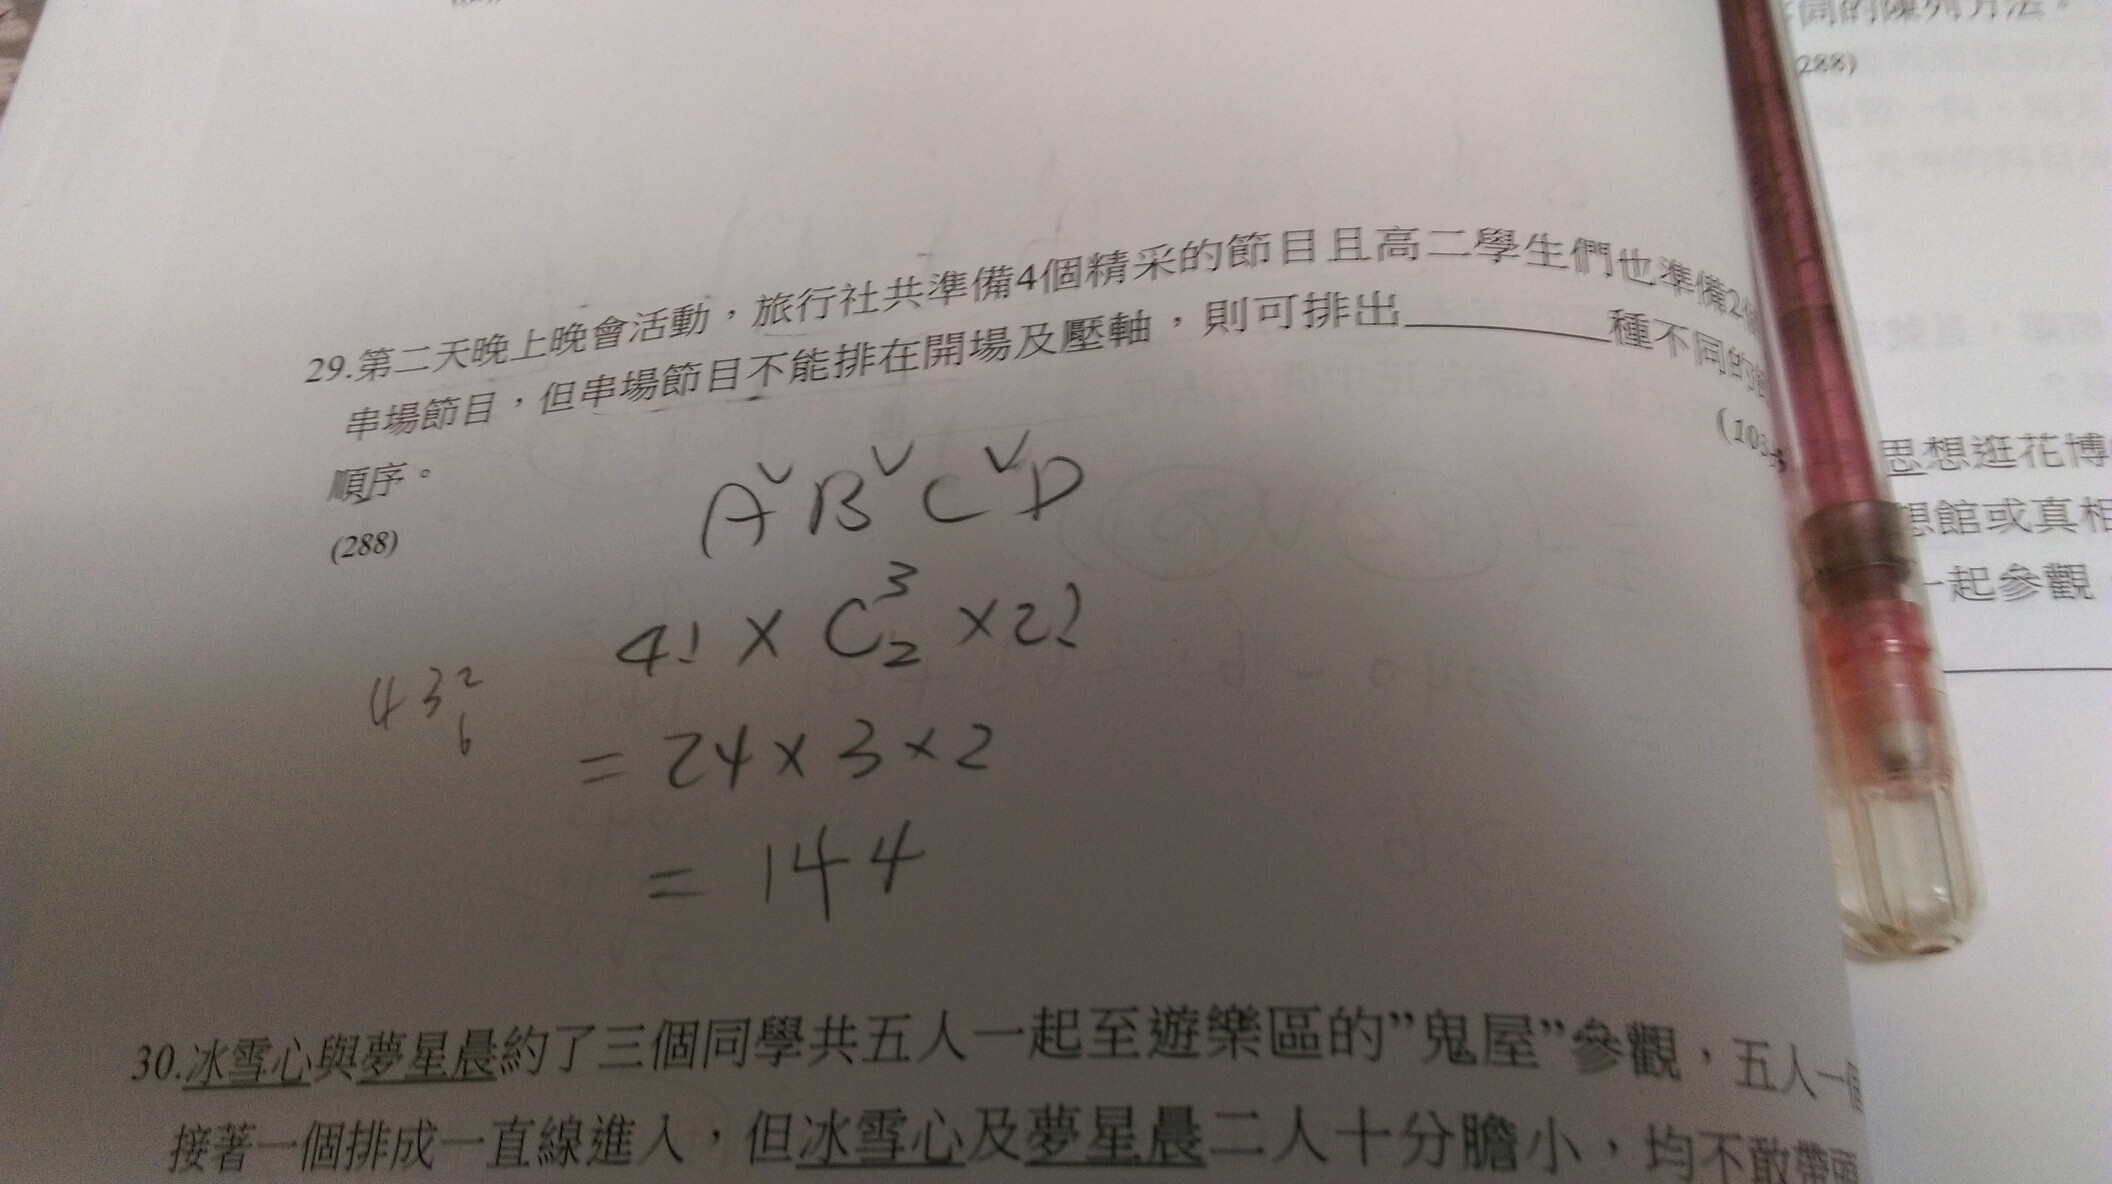 同的陳列方法。
(288)
29.第二天晚上晚會活動，旅行社共準備4個精采的節目且高二學生們也準備2個
串場節目，但串場節目不能排在開場及壓軸，則可排出________種不同的
順序。
(288)
A∨B∨C∨D
4! × C³₂ × 2!
4 3 2
6
= 24 × 3 × 2
= 144
思想逛花博
想館或真相
一起參觀
30.冰雪心與夢星晨約了三個同學共五人一起至遊樂區的”鬼屋”參觀，五人一個
接著一個排成一直線進入，但冰雪心及夢星晨二人十分膽小，均不敢帶頭